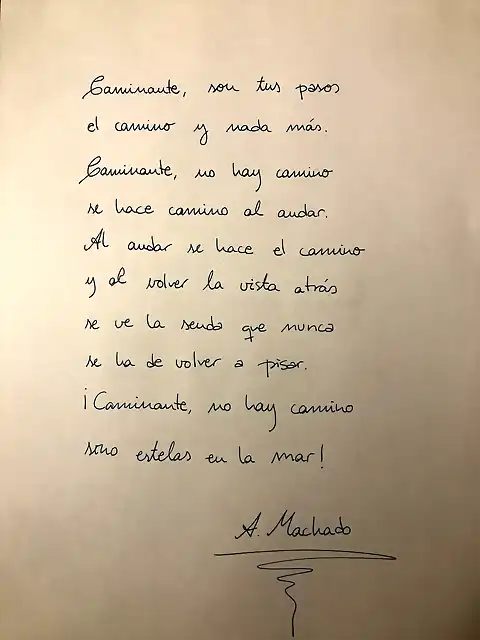 Caminante, son tus pasos
el camino y nada más.
Caminante, no hay camino
se hace camino al andar.
Al andar se hace el camino
y al volver la vista atrás
se ve la senda que nunca
se ha de volver a pisar.
¡Caminante, no hay camino
sino estelas en la mar!
A. Machado